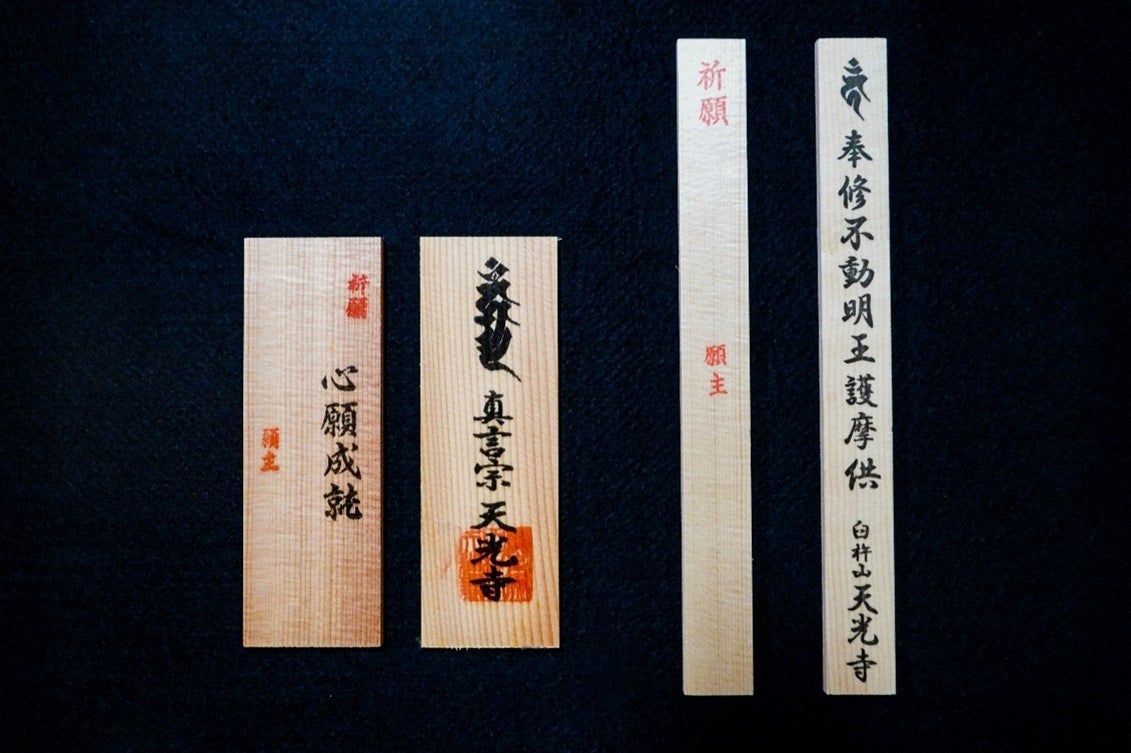 祈願
心願成就
願主
真言宗 天光寺
祈願
願主
奉修不動明王護摩供
臼杵山天光寺